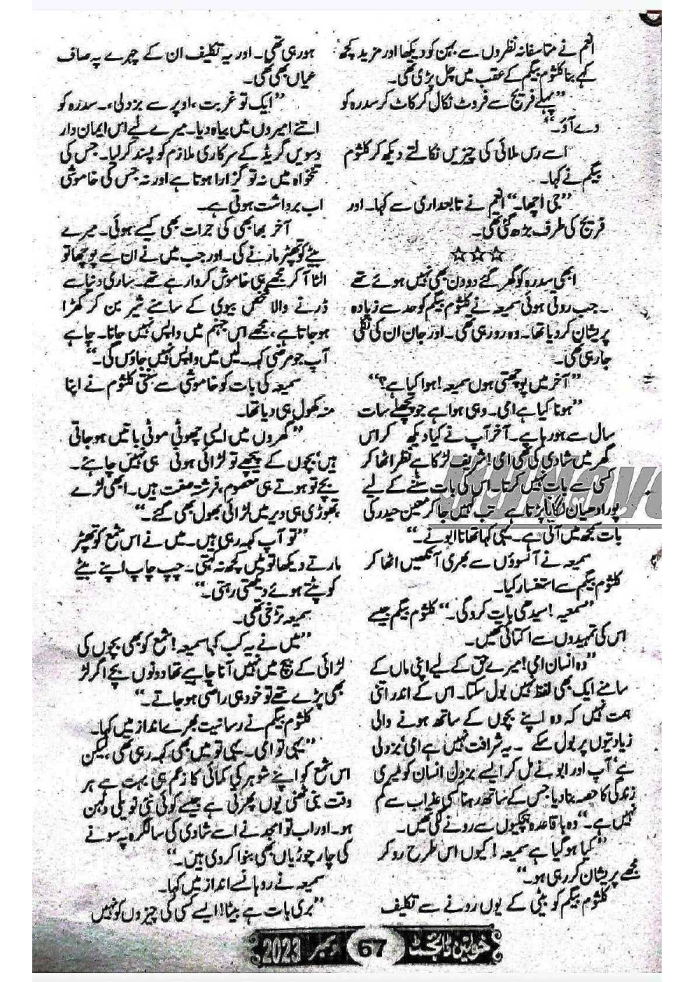 انعم نے متاسفانہ نظروں سے بہن کو دیکھا اور مزید کچھ
کہے بنا کلثوم بیگم کے عقب میں چل پڑی تھی۔
”پہلے فریج سے فروٹ نکال کر کاٹ کر سدرہ کو
دے آؤ۔“
اسے رس ملائی کی چیزیں نکالتے دیکھ کر کلثوم
بیگم نے کہا۔
”جی اچھا۔“ انعم نے تابعداری سے کہا۔ اور
فریج کی طرف بڑھ گئی تھی۔
☆☆☆
ابھی سدرہ کو گھر گئے دو دن بھی نہیں ہوئے تھے
۔جب روتی ہوئی سمیعہ نے کلثوم بیگم کو حد سے زیادہ
پریشان کر دیا تھا۔ وہ رو رہی تھی۔ اور جان ان کی نکلی
جا رہی تھی۔
”آخر میں پوچھتی ہوں سمیعہ! ہوا کیا ہے؟“
”ہونا کیا ہے امی۔ وہی ہوا ہے جو پچھلے سات
سال سے ہو رہا ہے۔ آخر آپ نے کیا دیکھ کر اس
گھر میں شادی کی تھی امی! شریف لڑکا ہے نظر اٹھا کر
کسی سے بات نہیں کرتا۔ اس کی بات سننے کے لیے
پورا دھیان لگانا پڑتا ہے۔ تب کہیں جا کر معین حیدر کی
بات سمجھ میں آتی ہے۔ یہی کہا تھا نا ابو نے۔“
سمیعہ نے آنسوؤں سے بھری آنکھیں اٹھا کر
کلثوم بیگم سے استفسار کیا۔
”سمعیہ! سیدھی بات کرو گی۔“ کلثوم بیگم جیسے
اس کی تمہیدوں سے اکتائی تھیں۔
”وہ انسان امی! میرے حق کے لیے اپنی ماں کے
سامنے ایک بھی لفظ نہیں بول سکتا۔ اس کے اندر اتنی
ہمت نہیں کہ وہ اپنے بچوں کے ساتھ ہونے والی
زیادتیوں پر بول سکے۔ یہ شرافت نہیں ہے امی‘ بزدلی
ہے‘ آپ اور ابو نے مل کر ایسے بزدل انسان کو میری
زندگی کا حصہ بنا دیا‘ جس کے ساتھ رہنا کسی عذاب سے کم
نہیں ہے۔“ وہ باقاعدہ ہچکیوں سے رونے لگی تھیں۔
”کیا ہو گیا ہے سمیعہ! کیوں اس طرح رو کر
مجھے پریشان کر رہی ہو۔“
کلثوم بیگم کو بیٹی کے یوں رونے سے تکلیف
ہو رہی تھی۔ اور یہ تکلیف ان کے چہرے پہ صاف
عیاں بھی تھی۔
”ایک تو غربت، اوپر سے بزدلی،۔ سدرہ کو
اتنے امیروں میں بیاہ دیا۔ میرے لیے اس ایمان دار
دسویں گریڈ کے سرکاری ملازم کو پسند کر لیا۔ جس کی
تنخواہ میں نہ تو گزارا ہوتا ہے اور نہ جس کی خاموشی
اب برداشت ہوتی ہے۔
آخر بھابھی کی جرات بھی کیسے ہوئی۔ میرے
بیٹے کو تھپڑ مارنے کی۔ اور جب میں نے ان سے پوچھا تو
الٹا آ کر مجھے ہی خاموش کروا رہے تھے۔ ساری دنیا سے
ڈرنے والا شخص بیوی کے سامنے شیر بن کر کھڑا
ہو جاتا ہے، مجھے اس جہنم میں واپس نہیں جانا۔ چاہے
آپ جو مرضی کہہ لیں میں واپس نہیں جاؤں گی۔“
سمیعہ کی بات کو خاموشی سے سنتی کلثوم نے اپنا
منہ کھول ہی دیا تھا۔
”گھروں میں ایسی چھوٹی موٹی باتیں ہو جاتی
ہیں‘ بچوں کے پیچھے تو لڑائی ہوئی ہی نہیں چاہئے۔
بچے تو ہوتے ہی معصوم، فرشتہ صفت ہیں۔ ابھی لڑے
تھوڑی ہی دیر میں لڑائی بھول بھی گئے۔“
”تو آپ کہہ رہی ہیں۔ میں نے اس شمع کو تھپڑ
مارتے دیکھا تو میں کچھ نہ کہتی۔ چپ چاپ اپنے بیٹے
کو پٹتے ہوئے دیکھتی رہتی۔“
سمیعہ تڑخی تھی۔
”میں نے یہ کب کہا سمیعہ! شمع کو بھی بچوں کی
لڑائی کے بیچ میں نہیں آنا چاہیے تھا دونوں بچے اگر لڑ
بھی پڑے تھے تو خود ہی راضی ہو جاتے۔“
کلثوم بیگم نے رسانیت بھرے انداز میں کہا۔
”یہی تو امی۔ یہی تو میں بھی کہہ رہی تھی، لیکن
اس شمع کو اپنے شوہر کی کمائی کا زعم ہی بہت ہے ہر
وقت بنی ٹھنی یوں پھرتی ہے جیسے کوئی نئی نویلی دلہن
ہو۔ اور اب تو امجد نے اسے شادی کی سالگرہ پہ سونے
کی چار چوڑیاں بھی بنوا کر دی ہیں۔“
سمیعہ نے روہانسے انداز میں کہا۔
”بری بات ہے بیٹا! ایسے کسی کی چیزوں کو نہیں
خواتین ڈائجسٹ 67 دسمبر 2023